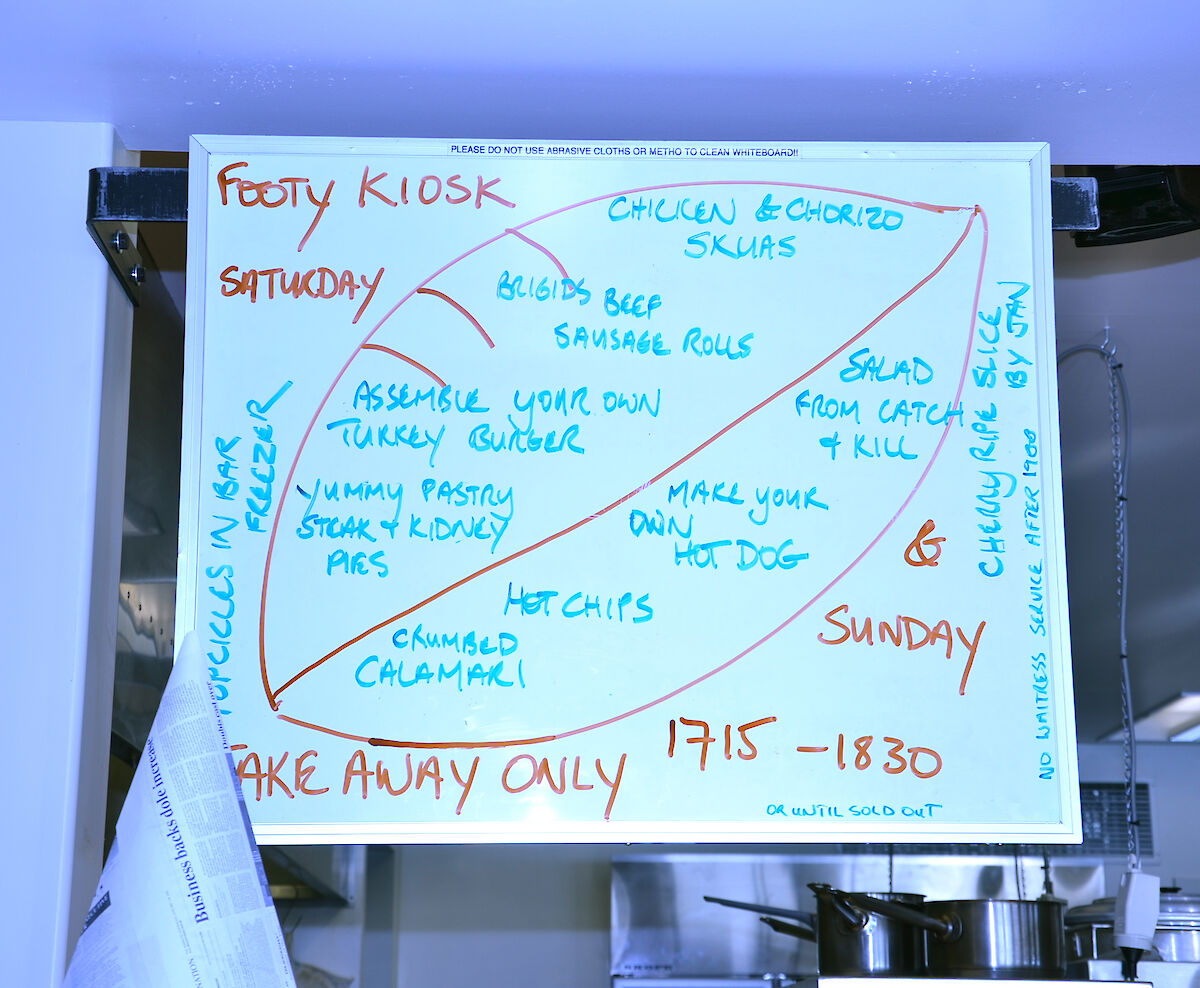 PLEASE DO NOT USE ABRASIVE CLOTHS OR METHO TO CLEAN WHITEBOARD!!
FOOTY KIOSK
SATURDAY
CHICKEN & CHORIZO
SKUAS
BRIGIDS BEEF
SAUSAGE ROLLS
ASSEMBLE YOUR OWN
TURKEY BURGER
YUMMY PASTRY
STEAK + KIDNEY
PIES
SALAD
FROM CATCH
+ KILL
MAKE YOUR
OWN
HOT DOG
HOT CHIPS
CRUMBED
CALAMARI
POPCICLES IN BAR
FREEZER
CHERRY RIPE SLICE
BY JAN
NO WAITRESS SERVICE AFTER 1900
&
SUNDAY
TAKE AWAY ONLY
1715 - 1830
OR UNTIL SOLD OUT
Business backs dole increase